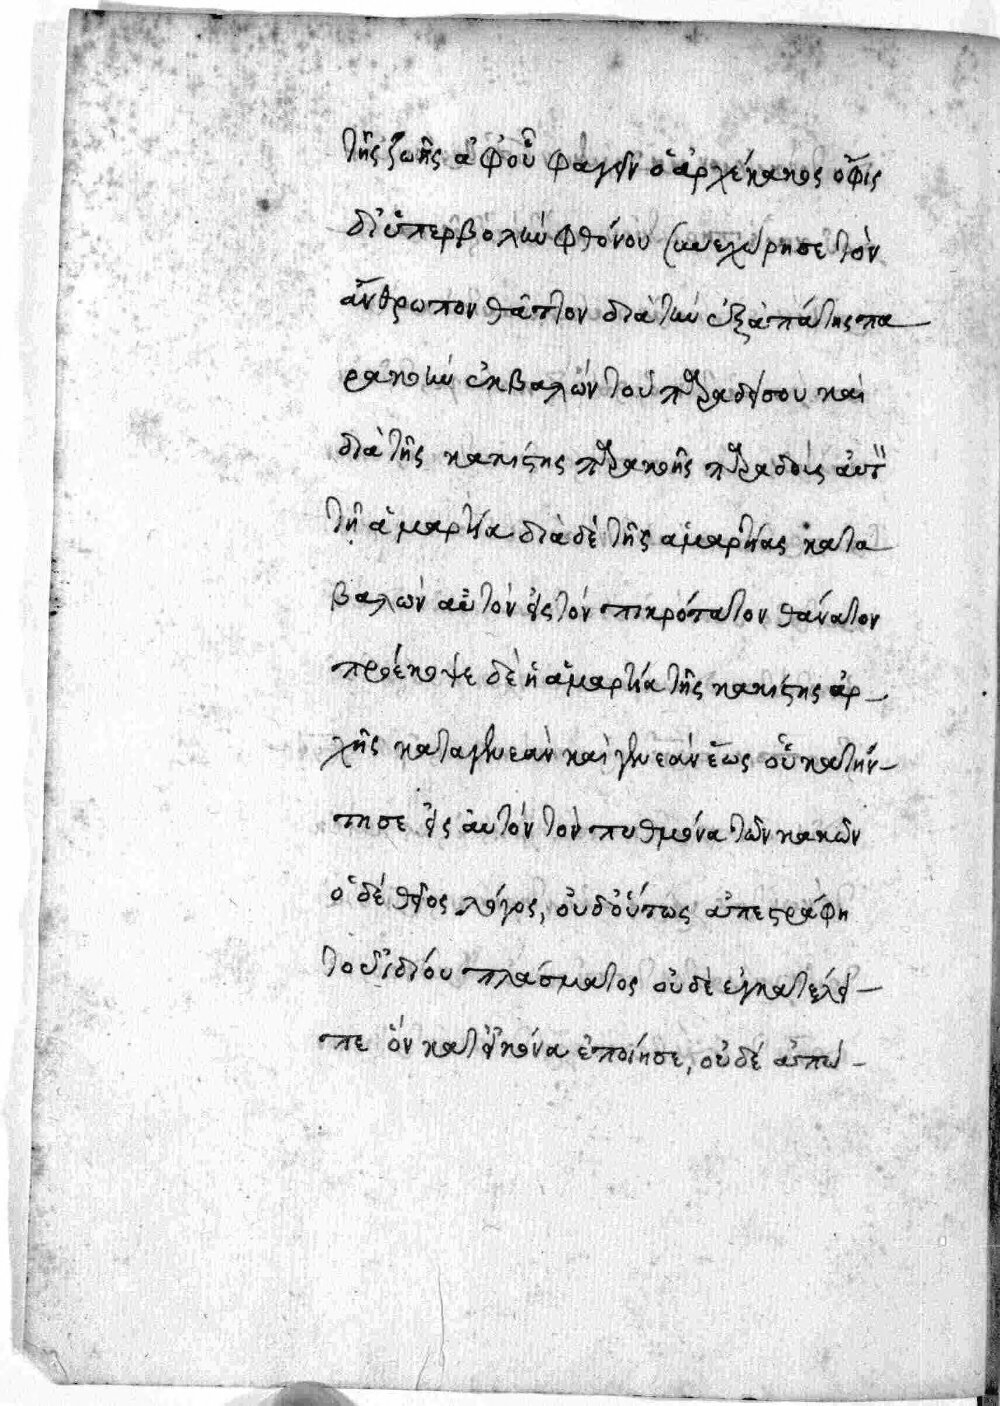 τῆς ζωῆς ἀφ' οὗ φαγεῖν ὁ ἀρχέκακος ὄφις
δι' ὑπερβολὴν φθόνου συνεχώρησε τὸν
ἄνθρωπον θᾶττον διὰ τὴν ἐξαπάτης πα
ρακοὴν ἐκβαλὼν τοῦ παραδείσου καὶ
διὰ τῆς κακίστης παρακοῆς παραδοὺς αὐτὸν
τῇ ἁμαρτία διὰ δὲ τῆς ἁμαρτίας κατα
βαλὼν αὐτὸν εἰς τὸν πικρότατον θάνατον
προέκοψε δὲ ἡ ἁμαρτία τῆς κακίστης ἀρ
χῆς κατὰ γενεὰν καὶ γενεὰν ἕως οὗ κατήν
τησε εἰς αὐτὸν τὸν πυθμένα τῶν κακῶν
ὁ δὲ θεῖος λόγος, οὐδ' οὕτως ἀπεστράφη
τοῦ ἰδίου πλάσματος οὐδὲ ἐγκατέλει
πε ὃν κατ' εἰκόνα ἐποίησε, οὐδὲ ἀπώ